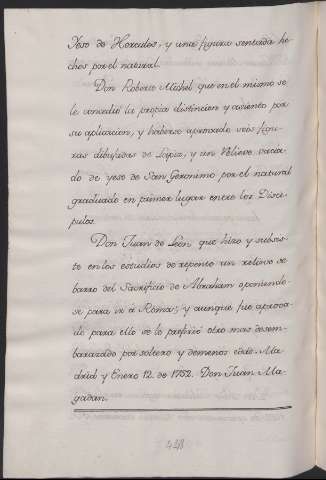 Yeso de Hercules, y una figura sentada he-
chos por el natural.
Don Roberto Michel que en el mismo se
le concedio la propia distincion y asiento por
su aplicacion, y haberse aprovado seis figu-
ras dibujadas de Lapiz, y un Relieve vacia-
do de yeso de San Geronimo por el natural
graduado en primer lugar entre los Disci-
pulos.
Don Juan de Leon que hizo y subsis-
te en los estudios de repente un relieve de
barro del Sacrificio de Abraham oponiendo-
se para ir á Roma; y aunque fue aprova-
do para ello se le prefirió otro mas desem-
barazado por soltero y de menos edad. Ma-
drid y Enero 12. de 1752. Don Juan Ma-
gadan.
428